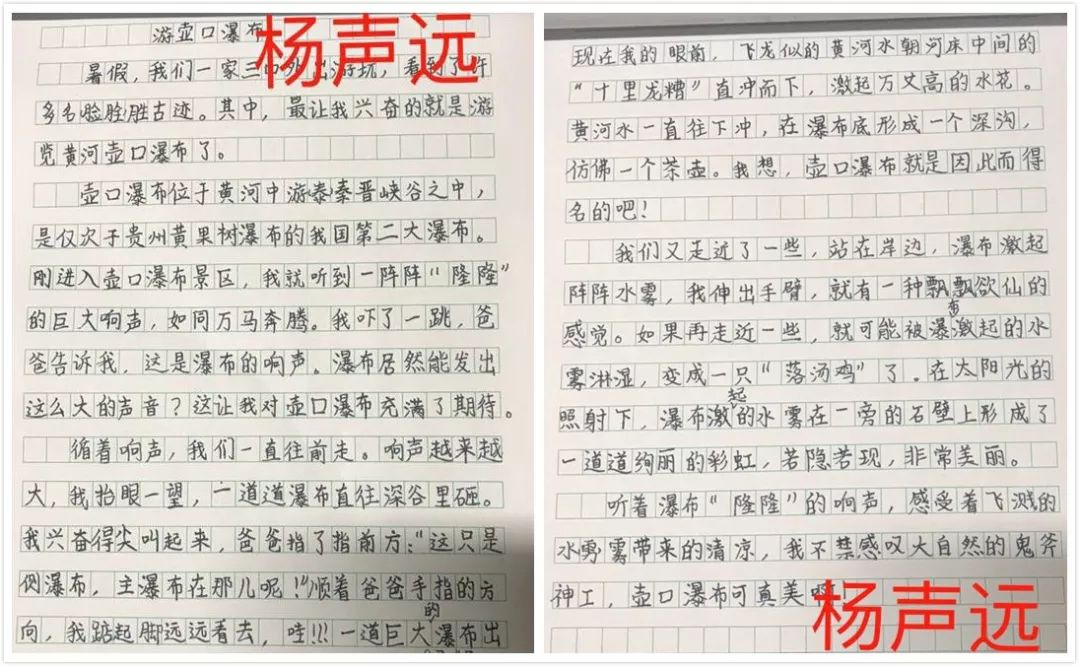 游壶口瀑布
杨声远
暑假，我们一家三口外出游玩，看到了许
多名脸脸胜古迹。其中，最让我兴奋的就是游
览黄河壶口瀑布了。
壶口瀑布位于黄河中游泰秦晋峡谷之中，
是仅次于贵州黄果树瀑布的我国第二大瀑布。
刚进入壶口瀑布景区，我就听到一阵阵“隆隆”
的巨大响声，如同万马奔腾。我吓了一跳，爸
爸告诉我，这是瀑布的响声。瀑布居然能发出
这么大的声音？这让我对壶口瀑布充满了期待。
循着响声，我们一直往前走。响声越来越
大，我抬眼一望，一道道瀑布直往深谷里砸。
我兴奋得尖叫起来，爸爸指了指前方：“这只是
侧瀑布，主瀑布在那儿呢！”顺着爸爸手指的方
向，我踮起脚远远看去，哇！！！一道巨大的瀑布出
现在我的眼前，飞龙似的黄河水朝河床中间的
“十里龙糟”直冲而下，激起万丈高的水花。
黄河水一直往下冲，在瀑布底形成一个深沟，
仿佛一个茶壶。我想，壶口瀑布就是因此而得
名的吧！
我们又走近了一些，站在岸边，瀑布激起
阵阵水雾，我伸出手臂，就有一种飘飘欲仙的
感觉。如果再走近一些，就可能被瀑布激起的水
雾淋湿，变成一只“落汤鸡”了。在太阳光的
照射下，瀑布激起的水雾在一旁的石壁上形成了
一道道绚丽的彩虹，若隐若现，非常美丽。
听着瀑布“隆隆”的响声，感受着飞溅的
水雾雾带来的清凉，我不禁感叹大自然的鬼斧
神工，壶口瀑布可真美啊！
杨声远